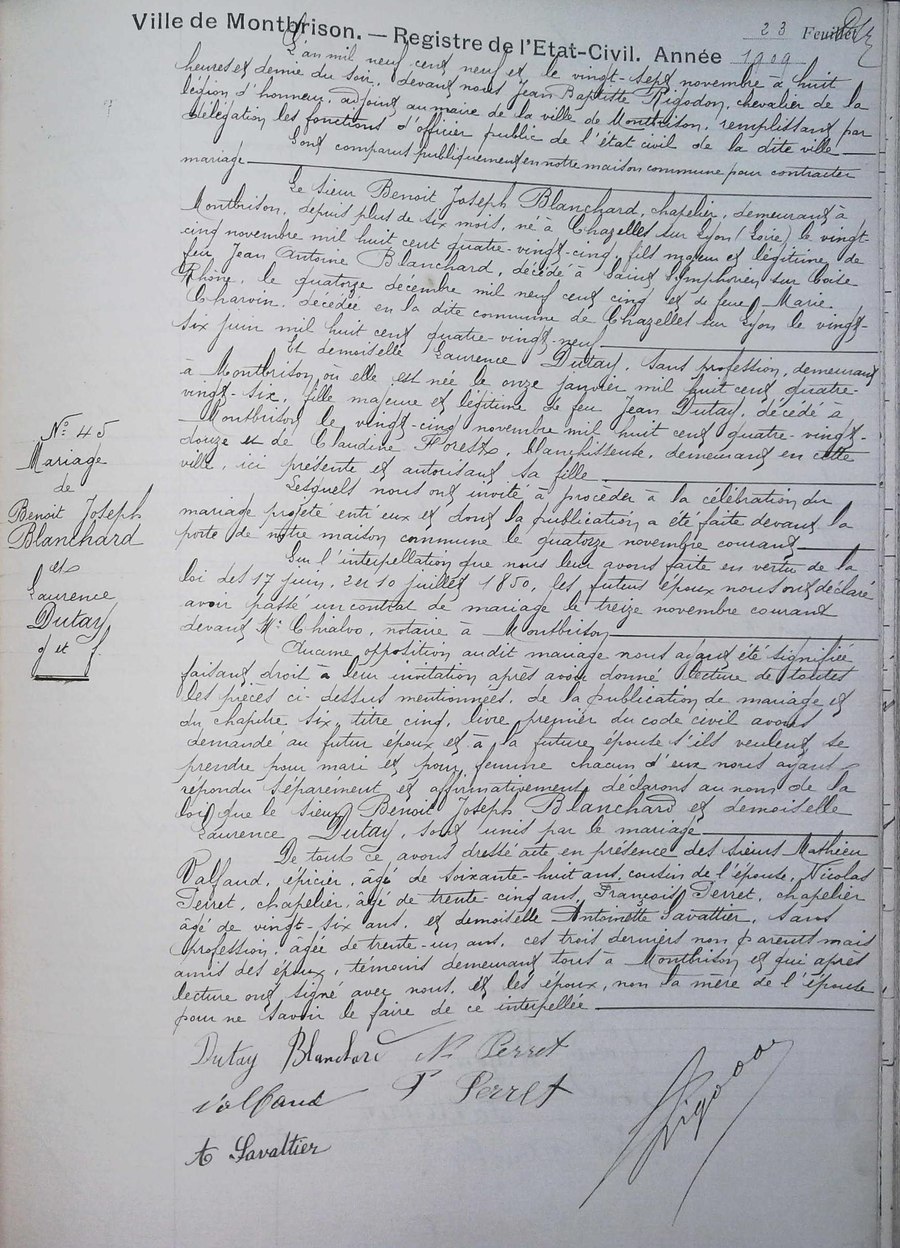 Ville de Montbrison. — Registre de l'Etat-Civil. Année 1909
23 Feuillet
L'an mil neuf cent neuf et le vingt-sept novembre à huit
heures et demie du soir, devant nous Jean Baptiste Rigodon, chevalier de la
légion d'honneur, adjoint au maire de la ville de Montbrison, remplissant par
délégation les fonctions d'officier public de l'état civil de la dite ville
Sont comparus publiquement en notre maison commune pour contracter
mariage
Le sieur Benoit Joseph Blanchard, chapelier, demeurant à
Montbrison, depuis plus de six mois, né à Chazelles sur Lyon (Loire) le vingt-
cinq novembre mil huit cent quatre-vingt-cinq, fils majeur et légitime de
feu Jean Antoine Blanchard, décédé à Saint Symphorien sur Coise
Rhône, le quatorze décembre mil neuf cent cinq et de feue Marie
Charvin, décédée en la dite commune de Chazelles sur Lyon le vingt-
six juin mil huit cent quatre-vingt-neuf
Et demoiselle Laurence Dutay, sans profession, demeurant
à Montbrison où elle est née le onze janvier mil huit cent quatre-
vingt-six, fille majeure et légitime de feu Jean Dutay, décédé à
Montbrison le vingt-cinq novembre mil huit cent quatre-vingt-
douze et de Claudine Forest, blanchisseuse, demeurant en cette
ville, ici présente et autorisant sa fille
Lesquels nous ont invité à procéder à la célébration du
mariage projeté entr'eux et dont la publication a été faite devant la
porte de notre maison commune le quatorze novembre courant
Sur l'interpellation que nous leur avons faite en vertu de la
loi des 17 juin, 2 et 10 juillet 1850, les futurs époux nous ont déclaré
avoir passé un contrat de mariage le treize novembre courant
devant Me Chialvo, notaire à Montbrison
Aucune opposition audit mariage nous ayant été signifiée
faisant droit à leur invitation après avoir donné lecture de toutes
les pièces ci-dessus mentionnées, de la publication de mariage et
du chapitre six, titre cinq, livre premier du code civil avons
demandé au futur époux et à la future épouse s'ils veulent se
prendre pour mari et pour femme chacun d'eux nous ayant
répondu séparément et affirmativement, déclarons au nom de la
loi que le sieur Benoit Joseph Blanchard et demoiselle
Laurence Dutay, sont unis par le mariage
De tout ce, avons dressé acte en présence des sieurs Mathieu
Valfaud, épicier, âgé de soixante-huit ans, cousin de l'épouse, Nicolas
Perret, chapelier, âgé de trente-cinq ans, François Perret, chapelier
âgé de vingt-six ans, et demoiselle Antoinette Savattier, sans
profession, âgée de trente-un ans, ces trois derniers non parents mais
amis des époux, témoins demeurant tous à Montbrison et qui après
lecture ont signé avec nous, et les époux, non la mère de l'épouse
pour ne savoir le faire de ce interpellée
N° 45
Mariage
de
Benoit Joseph
Blanchard
et
Laurence
Dutay
Dutay Blanchard N Perret
Valfaud F Perret
A Savattier
Rigodon